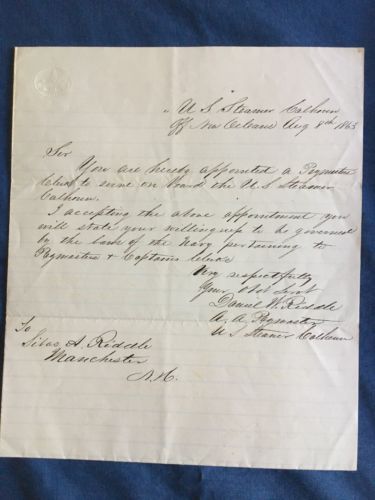 U. S. Steamer Calhoun
Off New Orleans Aug 8th 1863
Sir
You are hereby appointed a Paymasters
Clerk to serve on board the U S Steamer
Calhoun.
I accepting the above appointment you
will state your willingness to be governed
by the laws of the Navy pertaining to
Paymasters & Captains Clerks
Very respectfully
Your Obt Servt
Daniel W. Riddle
A. A. Paymaster
U S Steamer Calhoun
To
Silas A Riddle
Manchester
N.H.